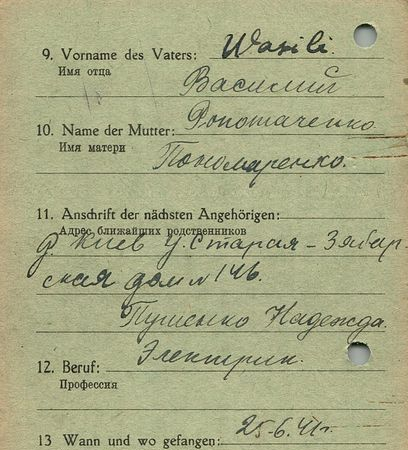 9. Vorname des Vaters: Wasili
Имя отца
Василий
10. Name der Mutter: Ponomachenko
Имя матери
Пономаренко.
11. Anschrift der nächsten Angehörigen:
Адрес ближайших родственников
Киев ул. Старая – Забар
ская дом № 146.
Надежда.
Электрик.
12. Beruf:
Профессия
25-6.41г.
13 Wann und wo gefangen: